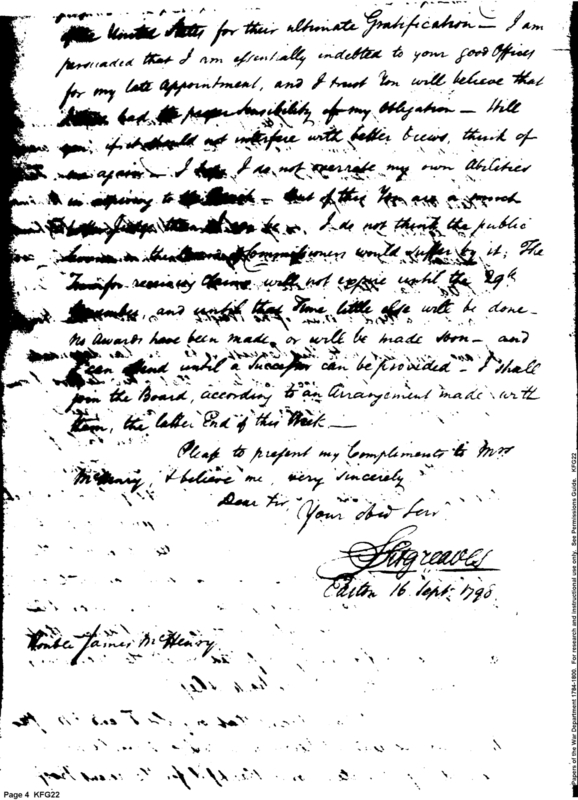 the United States for their ultimate Gratification — I am
persuaded that I am essentially indebted to your good Offices
for my late Appointment, and I trust You will believe that
had the proper sensibility of my Obligation — Still
if it should not interfere with better Views, think of
me again — I hope I do not overrate my own Abilities
in aspiring to the — But of this You are a much
Judge than I can be — I do not think the public
in the Commissioners would suffer by it; The
Time for receiving Claims will not expire until the 29th
and until that Time little else will be done —
No Awards have been made, or will be made soon — and
I can attend until a Successor can be provided — I shall
join the Board, according to an Arrangement made with
them, the latter End of this Week —
Please to present my Complements to Mrs
McHenry, & believe me, very sincerely
Dear Sir,
Your obed Serv
Sitgreaves
Easton 16 Sept. 179
Honble James McHenry
Page 4 KFG22
Papers of the War Department 1784-1800. For research and instructional use only. See Permissions Guide. KFG22